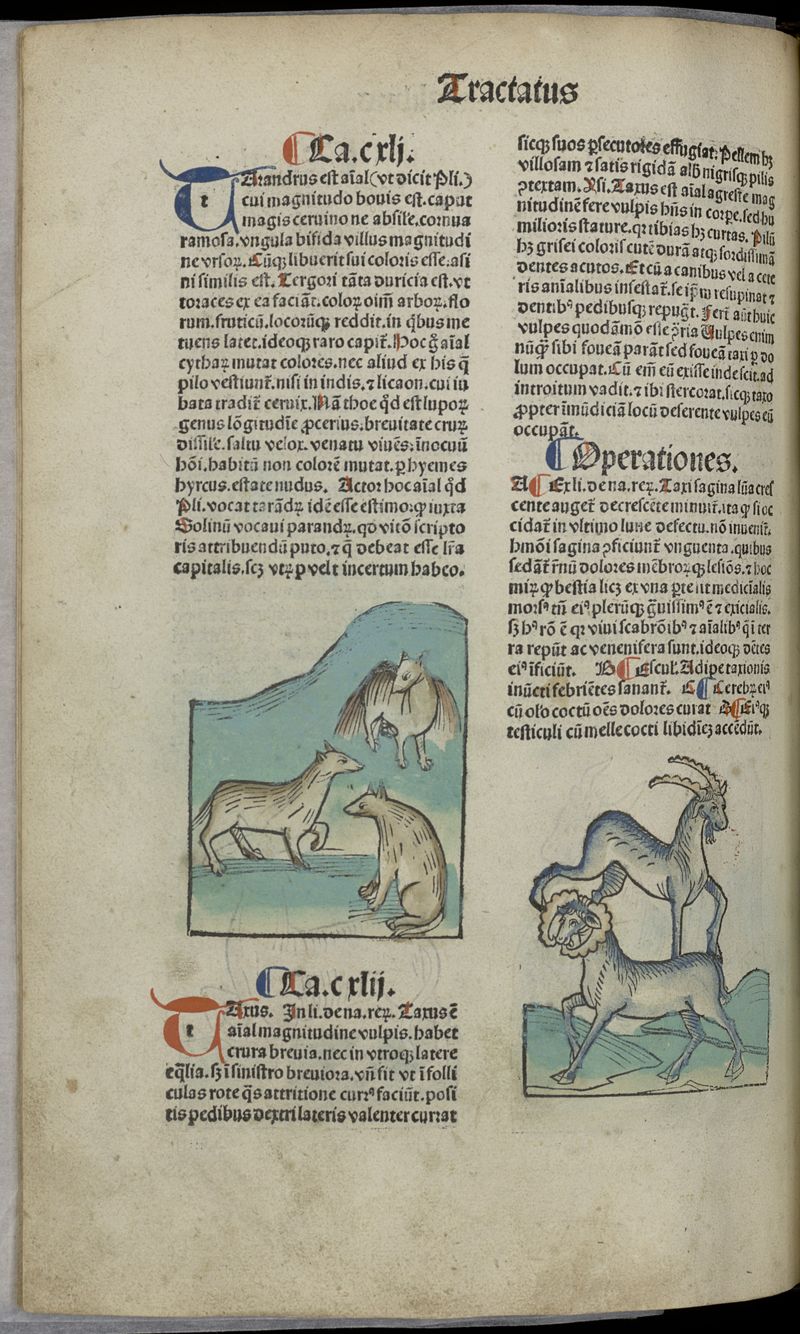 Tractatus
Ca.cxlj.
TArandrus est aīal (vt dicit Pli.)
cui magnitudo bouis est. caput
magis ceruino ne absile. cornua
ramosa. vngula bifida villus magnitudi
ne vrsoꝝ. Cūqꝫ libuerit sui coloris esse. asi
ni similis est. Tergori tāta duricia est. vt
toraces ex ea faciāt. coloꝝ oīm arboꝝ. flo
rum. fruticū. locorūqꝫ reddit. in q̄bus me
tuens latet. ideoqꝫ raro capit̄. Hoc g̊ aīal
cythaꝝ mutat colores. nec aliud ex his q̄
pilo vestiunt̄. nisi in indis. ⁊ licaon. cui iu
bata tradit̄ ceruix. Nā thoe qd̄ est lupoꝝ
genus lōgitudīe ꝓcerius. breuitate cruꝝ
dissīle. saltu velox. venatu viuēs. īnocuū
hōi. habitū non colorē mutat. ꝑ hyemes
hyrcus. estate nudus. Actor hoc aīal qd̄
Pli. vocat tarādꝝ idē esse estimo. qꝫ iuxta
Solinū vocaui parandꝝ. qd̄ vitō scripto
ris attribuendū puto. ⁊ q̄ debeat esse lr̄a
capitalis. scꝫ vtꝝ p vel t incertum habeo.
Ca.cxlij.
TAxus. In li. de na. reꝝ. Taxus ē
aīal magnitudine vulpis. habet
crura breuia. nec in vtroqꝫ latere
eq̄lia. sꝫ ī sinistro breuiora. vn̄ fit vt ī folli
culas rote q̄s attritione curr⁹ faciūt. posi
tis pedibus dextri lateris valenter currat
sicqꝫ suos ꝑsecutores effugiat. Pellem hꝫ
villosam ⁊ satis rigidā albō nigrisqꝫ pilis
ꝓtextam. Ysi. Taxus est aīal agreste mag
nitudinē fere vulpis hn̄s in corꝑe. sed hu
milioris stature. qꝛ tibias hꝫ curtas. Pilū
hꝫ grisei coloris cutē durā atqꝫ sordissimā
dentes acutos. Et cū a canibus vel a cete
ris aīalibus infestat̄. se ip̄m resupinat ⁊
dentib⁹ pedibusqꝫ repugt̄. Fert̄ aūt huic
vulpes quodāmō esse ꝯtria Vulpes enim
nūq̄ꝫ sibi foueā parāt sed foueā taxi ꝑ do
lum occupat. Cū em̄ eū exisse inde scit. ad
introitum vadit. ⁊ ibi stercorat. sicqꝫ taxo
ꝓpter īmūdiciā locū deserente vulpes eū
occupāt.
Operationes.
A Ex li. de na. reꝝ. Taxi sagina lūa cres
cente auget̄ decrescēte minuit̄. ita qꝫ si oc
cidat̄ in vltimo lune defectu. nō inuenit̄.
hmōi sagina ꝓficiunt̄ vnguenta. quibus
sedāt̄ rēnū dolores mēbroꝝqꝫ lesiōs. ⁊ hoc
miꝝ qꝫ bestia licꝫ ex vna ꝑte sit medicīalis
mors⁹ tn̄ ei⁹ plerūqꝫ g̊uissim⁹ ē ⁊ exicialis.
sꝫ h⁹ rō ē qꝛ viui scabrōib⁹ ⁊ aīalib⁹ q̄ ī ter
ra repūt ac venenifera sunt. ideoqꝫ dētes
ei⁹ īficiūt. B Escul. Adipe taxionis
inūcti febriētes sanant̄. C Cerebꝝ ei⁹
cū oleo coctū oēs dolores curat D Ei⁹qꝫ
testiculi cū melle cocti libidīeꝫ accēdūt.